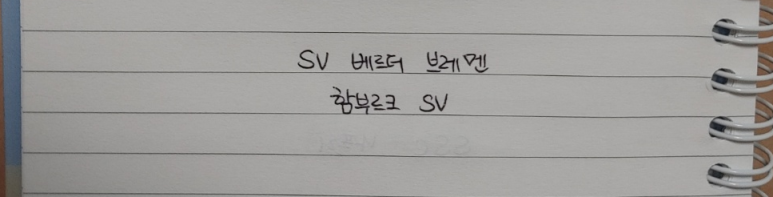 SV 베르더 브레멘
함부르크 SV